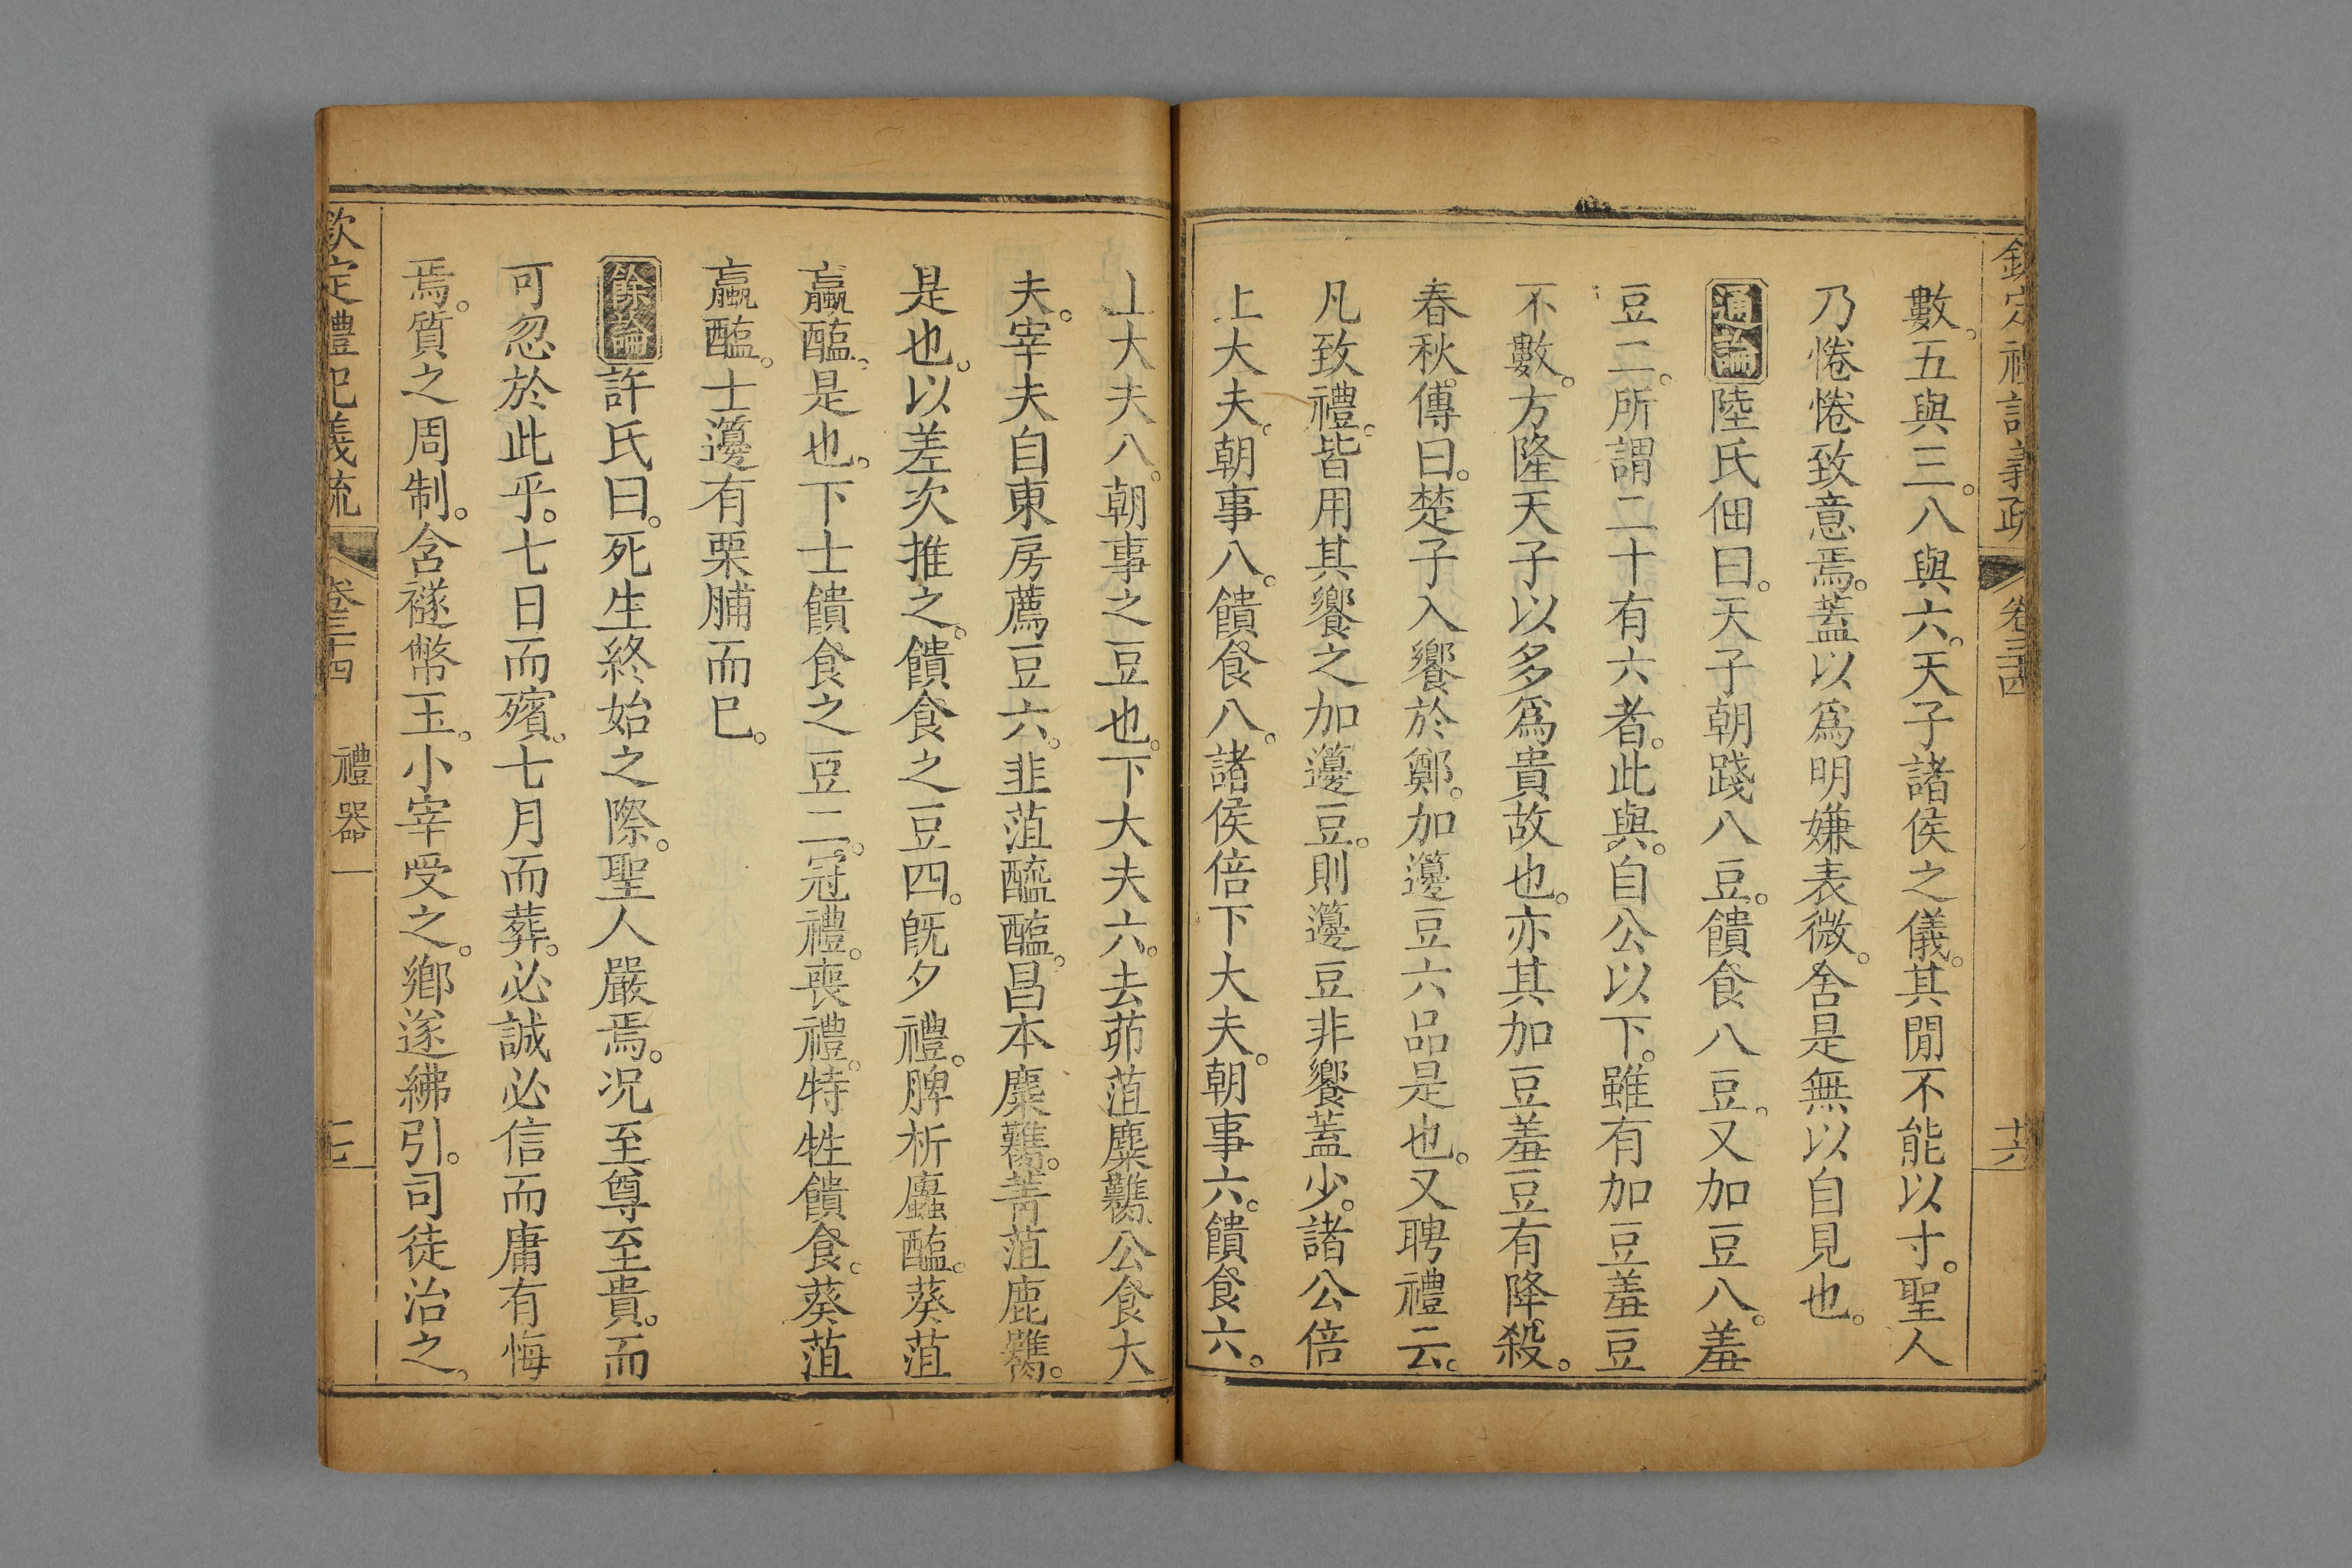 欽定禮記義疏 卷三十四 十六
數。五與三。八與六。天子諸侯之儀。其閒不能以寸。聖人
乃惓惓致意焉。蓋以爲明嫌表微。舍是無以自見也。
通論陸氏佃曰。天子朝踐八豆。饋食八豆。又加豆八。羞
豆二。所謂二十有六者。此與。自公以下。雖有加豆羞豆
不數。方隆天子以多爲貴故也。亦其加豆羞豆有降殺。
春秋傳曰。楚子入饗於鄭。加籩豆六品是也。又聘禮云。
凡致禮。皆用其饗之加籩豆。則籩豆非饗蓋少。諸公倍
上大夫。朝事八。饋食八。諸侯倍下大夫。朝事六。饋食六。
上大夫八。朝事之豆也。下大夫六。去茆菹麋臡。公食大
夫。宰夫自東房薦豆六。韭菹醓醢。昌本麋臡。菁菹鹿臡。
是也。以差次推之。饋食之豆四。旣夕禮。脾析蠯醢。葵菹
蠃醢。是也。下士饋食之豆二。冠禮。喪禮。特牲饋食。葵菹
蠃醢。士籩有栗脯而已。
餘論許氏曰。死生終始之際。聖人嚴焉。况至尊至貴。而
可忽於此乎。七日而殯。七月而葬。必誠必信而庸有悔
焉。質之周制。含襚幣玉。小宰受之。鄉遂紼引。司徒治之。
欽定禮記義疏 卷三十四 禮器一